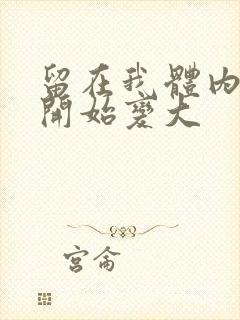 留在我體內
開始變大
宮侖